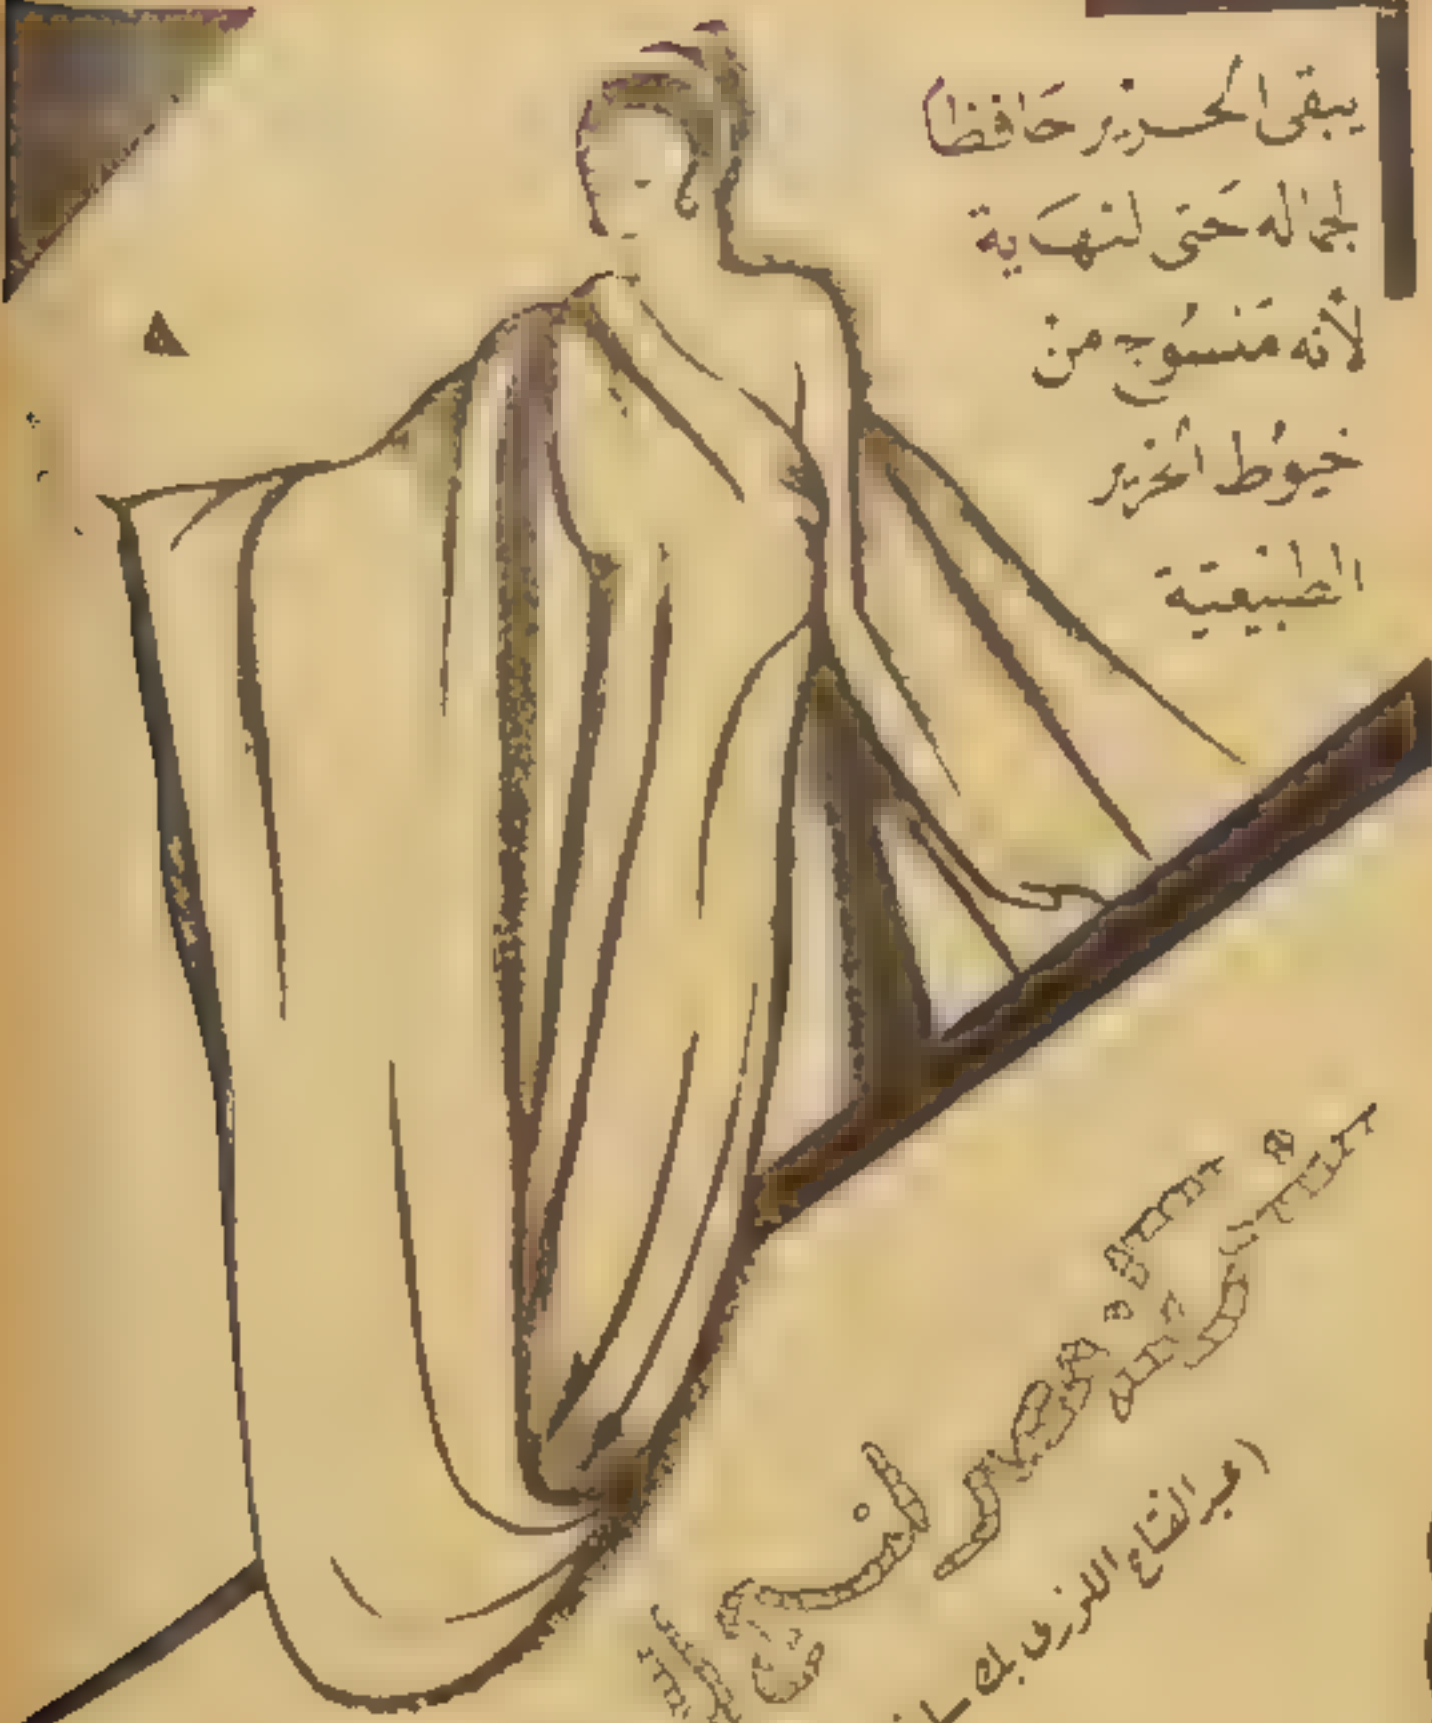 يبقى الحرير حَافظا
لجماله حَتى لنهَاية
لأنه مَنسُوج من
خيوُط الحرير
الطبيعية
شركة مصر لنسج
الحرير
(عبد الفتاح اللوزى بك